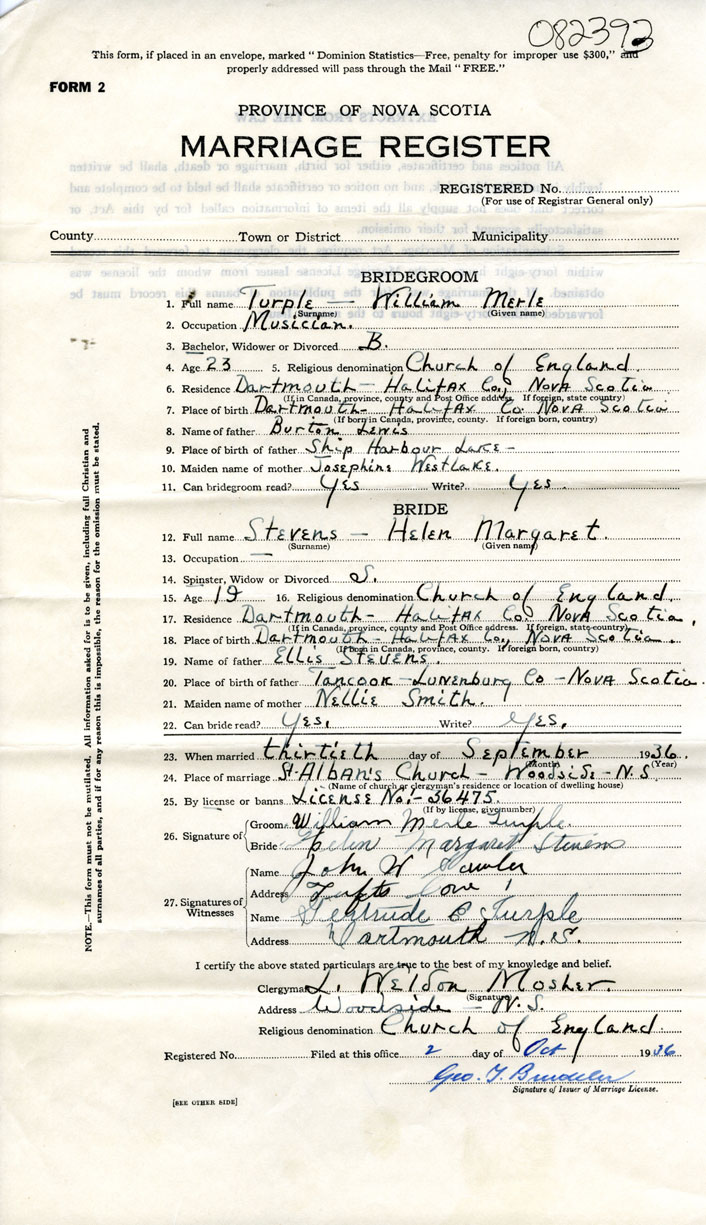 082393
This form, if placed in an envelope, marked "Dominion Statistics—Free, penalty for improper use $300," and
properly addressed will pass through the Mail "FREE."
FORM 2
PROVINCE OF NOVA SCOTIA
MARRIAGE REGISTER
REGISTERED No.
(For use of Registrar General only)
County Town or District Municipality
BRIDEGROOM
1. Full name Turple — William Merle
(Surname) (Given name)
2. Occupation Musician.
3. Bachelor, Widower or Divorced B.
4. Age 23 5. Religious denomination Church of England.
6. Residence Dartmouth - Halifax Co., Nova Scotia
(If in Canada, province, county and Post Office address. If foreign, state country)
7. Place of birth Dartmouth - Halifax Co Nova Scotia
(If born in Canada, province, county. If foreign born, country)
8. Name of father Burton Lewis
9. Place of birth of father Ship Harbour Lake -
10. Maiden name of mother Josephine Westlake.
11. Can bridegroom read? Yes Write? Yes.
BRIDE
12. Full name Stevens — Helen Margaret.
(Surname) (Given name)
13. Occupation —
14. Spinster, Widow or Divorced S.
15. Age 19 16. Religious denomination Church of England.
17. Residence Dartmouth - Halifax Co. Nova Scotia.
(If in Canada, province, county and Post Office address. If foreign, state country)
18. Place of birth Dartmouth - Halifax Co., Nova Scotia.
(If born in Canada, province, county. If foreign born, country)
19. Name of father Ellis Stevens.
20. Place of birth of father Tancook - Lunenburg Co - Nova Scotia.
21. Maiden name of mother Nellie Smith.
22. Can bride read? Yes. Write? Yes.
23. When married thirtieth day of September 1936.
(Month) (Year)
24. Place of marriage St. Alban's Church - Woodside - N.S.
(Name of church or clergyman's residence or location of dwelling house)
25. By license or banns License No:- 36475.
(If by license, give number)
26. Signature of
Groom William Merle Turple
Bride Helen Margaret Stevens
27. Signatures of Witnesses
Name John W
Address Tufts Cove
Name Gertrude Turple
Address Dartmouth N.S.
I certify the above stated particulars are true to the best of my knowledge and belief.
Clergyman L. Weldon Mosher.
(Signature)
Address Woodside - N.S.
Religious denomination Church of England.
Registered No. Filed at this office 2 day of Oct 1936
Geo. T.
Signature of Issuer of Marriage License.
[SEE OTHER SIDE]
NOTE.—This form must not be mutilated. All information asked for is to be given, including full Christian and
surnames of all parties, and if for any reason this is impossible, the reason for the omission must be stated.